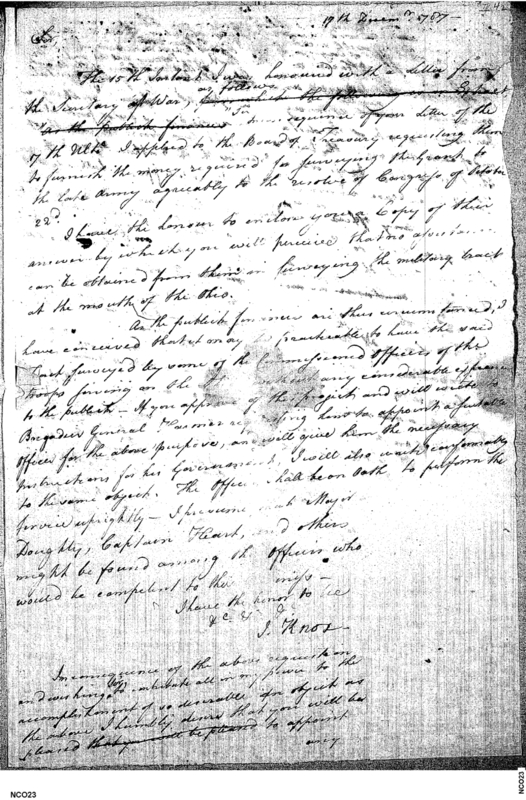 19th Decemr 1787 —
Sir,
The 15th Instant I was honoured with a Letter from
the Secretary at War, as follows
In consequence of your Letter of the
of the Ulto. I applied to the Board of Treasury requesting them
to furnish the money required for surveying the Grant to
the late Army agreeably to the resolve of Congress of October
22d.
I have the honour to enclose you a Copy of their
answer by which you will perceive that no assistance
can be obtained from them in surveying the military tract
at the mouth of the Ohio.
As the publick finances are thus circumstanced, I
have conceived that it may be practicable to have the said
Tract surveyed by some of the Commissioned Officers of the
troops serving on the any considerable expence
to the publick — If you approve of the project and will write to
Brigadier General Harmar requesting him to appoint a suitable
Officer for the above purpose, and will give him the necessary
Instructions for his Government, I will also write conformably
to the same object. The Officer shall be on Oath to perform the
service uprightly — I presume that Major
Doughty, Captain Heart, and others
might be found among the Officers who
would be competent to the
I have the honor to be
&c. &c.
J. Knox —
In consequence of the above request and
and wishing to contribute all in my power to the
accomplishment of so desirable an object as
the above I humbly desire that you will be
pleased that you will be pleased to appoint
any
NCO23
NCO23